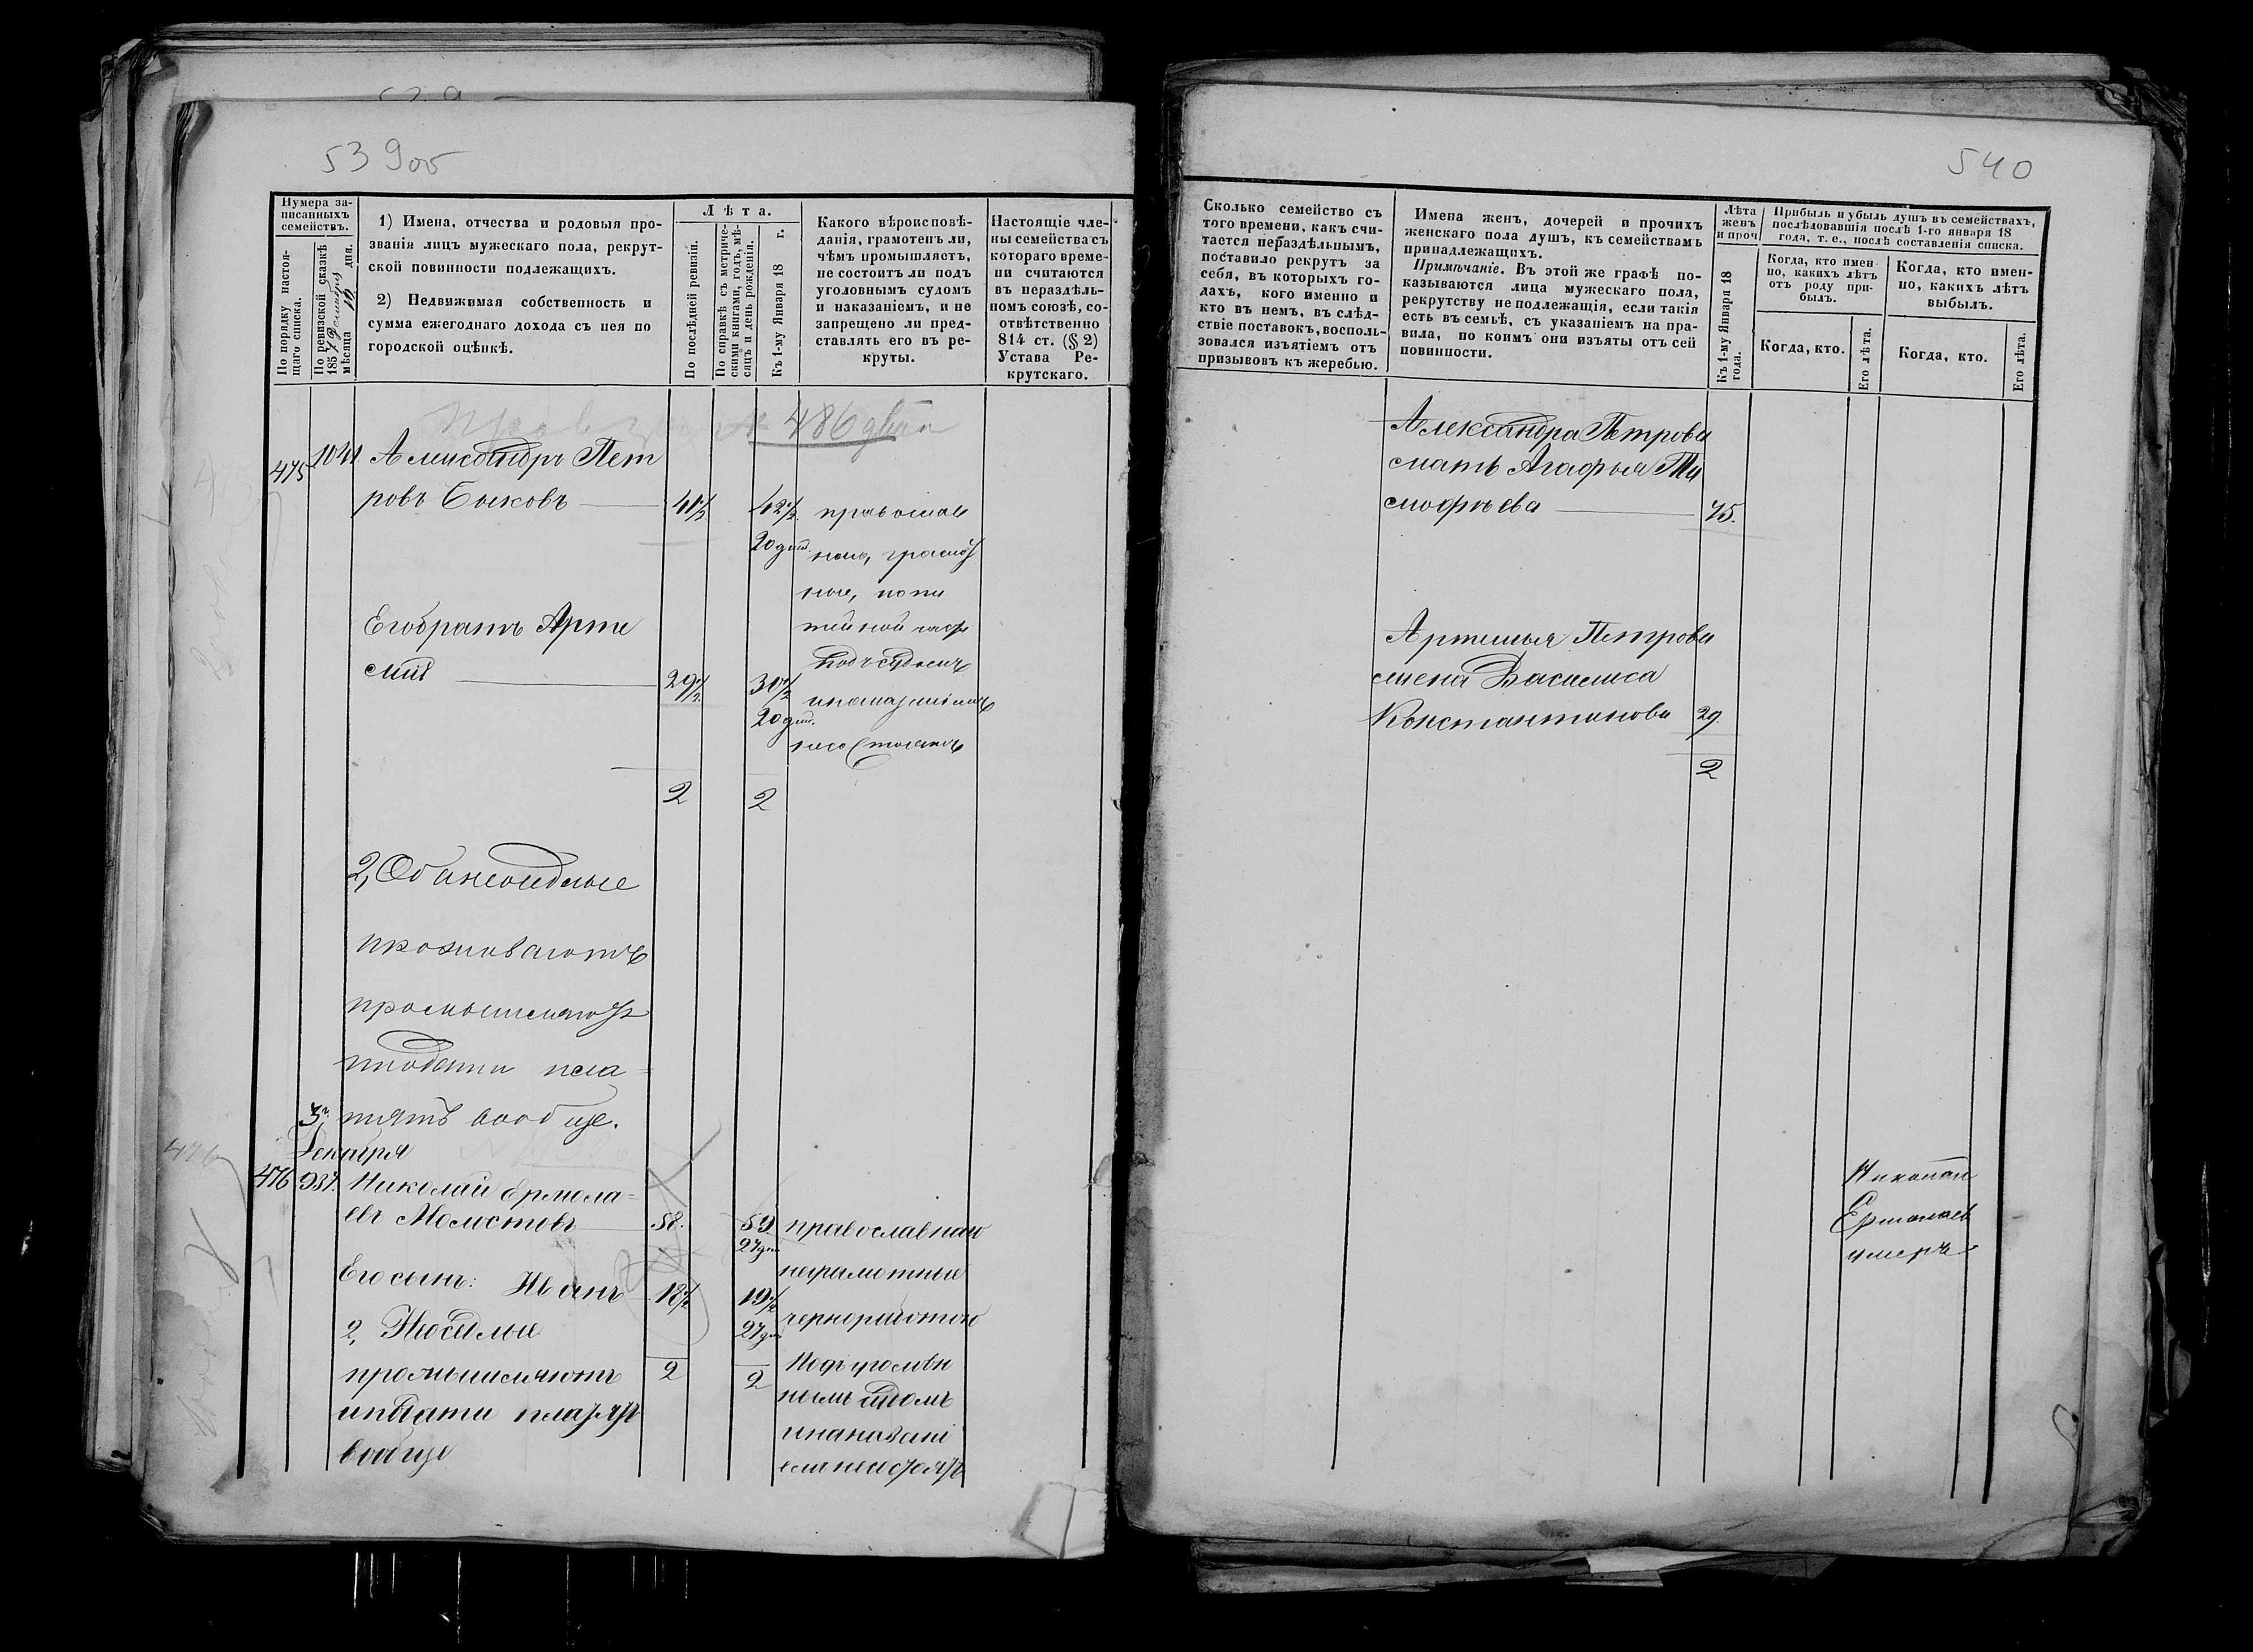 539об
Нумера за-
писанныхъ
семействъ.
По порядку настоя-
щаго списка.
По ревизской сказкѣ
185
мѣсяца дня.
1) Имена, отчества и родовыя про-
званія лицъ мужескаго пола, рекрут-
ской повинности подлежащихъ.
2) Недвижимая собственность и
сумма ежегоднаго дохода съ нея по
городской оцѣнкѣ.
Лѣта.
По послѣдней ревизіи.
По справкѣ съ метриче-
скими книгами, годъ, мѣ-
сяцъ и день рожденія.
Къ 1-му Января 18 г.
Какого вѣроисповѣ-
данія, грамотенъ ли,
чѣмъ промышляетъ,
не состоитъ ли подъ
уголовнымъ судомъ
и наказаніемъ, и не
запрещено ли пред-
ставлять его въ ре-
круты.
Настоящіе чле-
ны семейства съ
котораго време-
ни считаются
въ нераздѣль-
номъ союзѣ, со-
отвѣтственно
814 ст. (§ 2)
Устава Ре-
крутскаго.
486
475 1041 Александръ Пет
ровъ Быковъ 41½ 42½
20 дни.
православ
ные,
ные,
Его братъ Арте
мій 29½ 30½
20 дни.
2 2
2,
проживаютъ
промышляютъ
и подати пла
тятъ вообще.
3
Декабря
476 937. Николай Ермола=
евъ 58. 59
27 дни
православнаго
неграмотные
Его сынъ: Иванъ 18½ 19½
27 дни
2,
промышляютъ 2 2
и подати платятъ
вообще
Подъ уголов
нымъ судомъ
и наказані
емъ не
540
Сколько семейство съ
того времени, какъ счи-
тается нераздѣльнымъ,
поставило рекрутъ за
себя, въ которыхъ го-
дахъ, кого именно и
кто въ немъ, въ слѣд-
ствіе поставокъ, восполь-
зовался изъятіемъ отъ
призывовъ къ жеребью.
Имена женъ, дочерей и прочихъ
женскаго пола душъ, къ семействамъ
принадлежащихъ.
Примѣчаніе. Въ этой же графѣ по-
казываются лица мужескаго пола,
рекрутству не подлежащія, если такія
есть въ семьѣ, съ указаніемъ на пра-
вила, по коимъ они изъяты отъ сей
повинности.
Лѣта
женъ
и проч
Къ 1-му Января 18
года.
Прибыль и убыль душъ въ семействахъ,
послѣдовавшія послѣ 1-го января 18
года, т. е., послѣ составленія списка.
Когда, кто имен-
но, какихъ лѣтъ
отъ роду при-
былъ.
Когда, кто имен-
но, какихъ лѣтъ
выбылъ.
Когда, кто.
Его лѣта.
Когда, кто.
Его лѣта.
Александра Петрова
мать Агафья Ти
мофѣева 75.
Артемья Петрова
жена Василиса
Константинова 29.
2
Николай
Ермолаев
умеръ